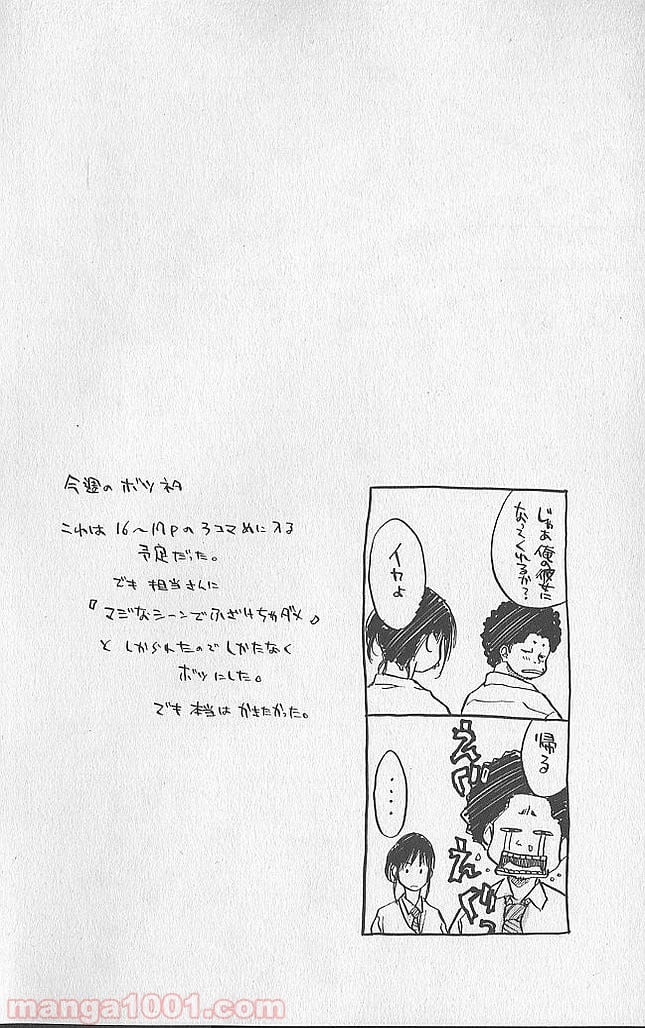 今週のボツネタ
これは16〜17Pの3コマめに入る
予定だった。
でも担当さんに
『マジなシーンでふざけちゃダメ』
としかられたのでしかたなく
ボツにした。
でも本当はかきたかった。
じゃあ俺の彼女に
なってくれるか?
イヤよ
帰る
えぐっ
えぐっ
....
manga1001.com